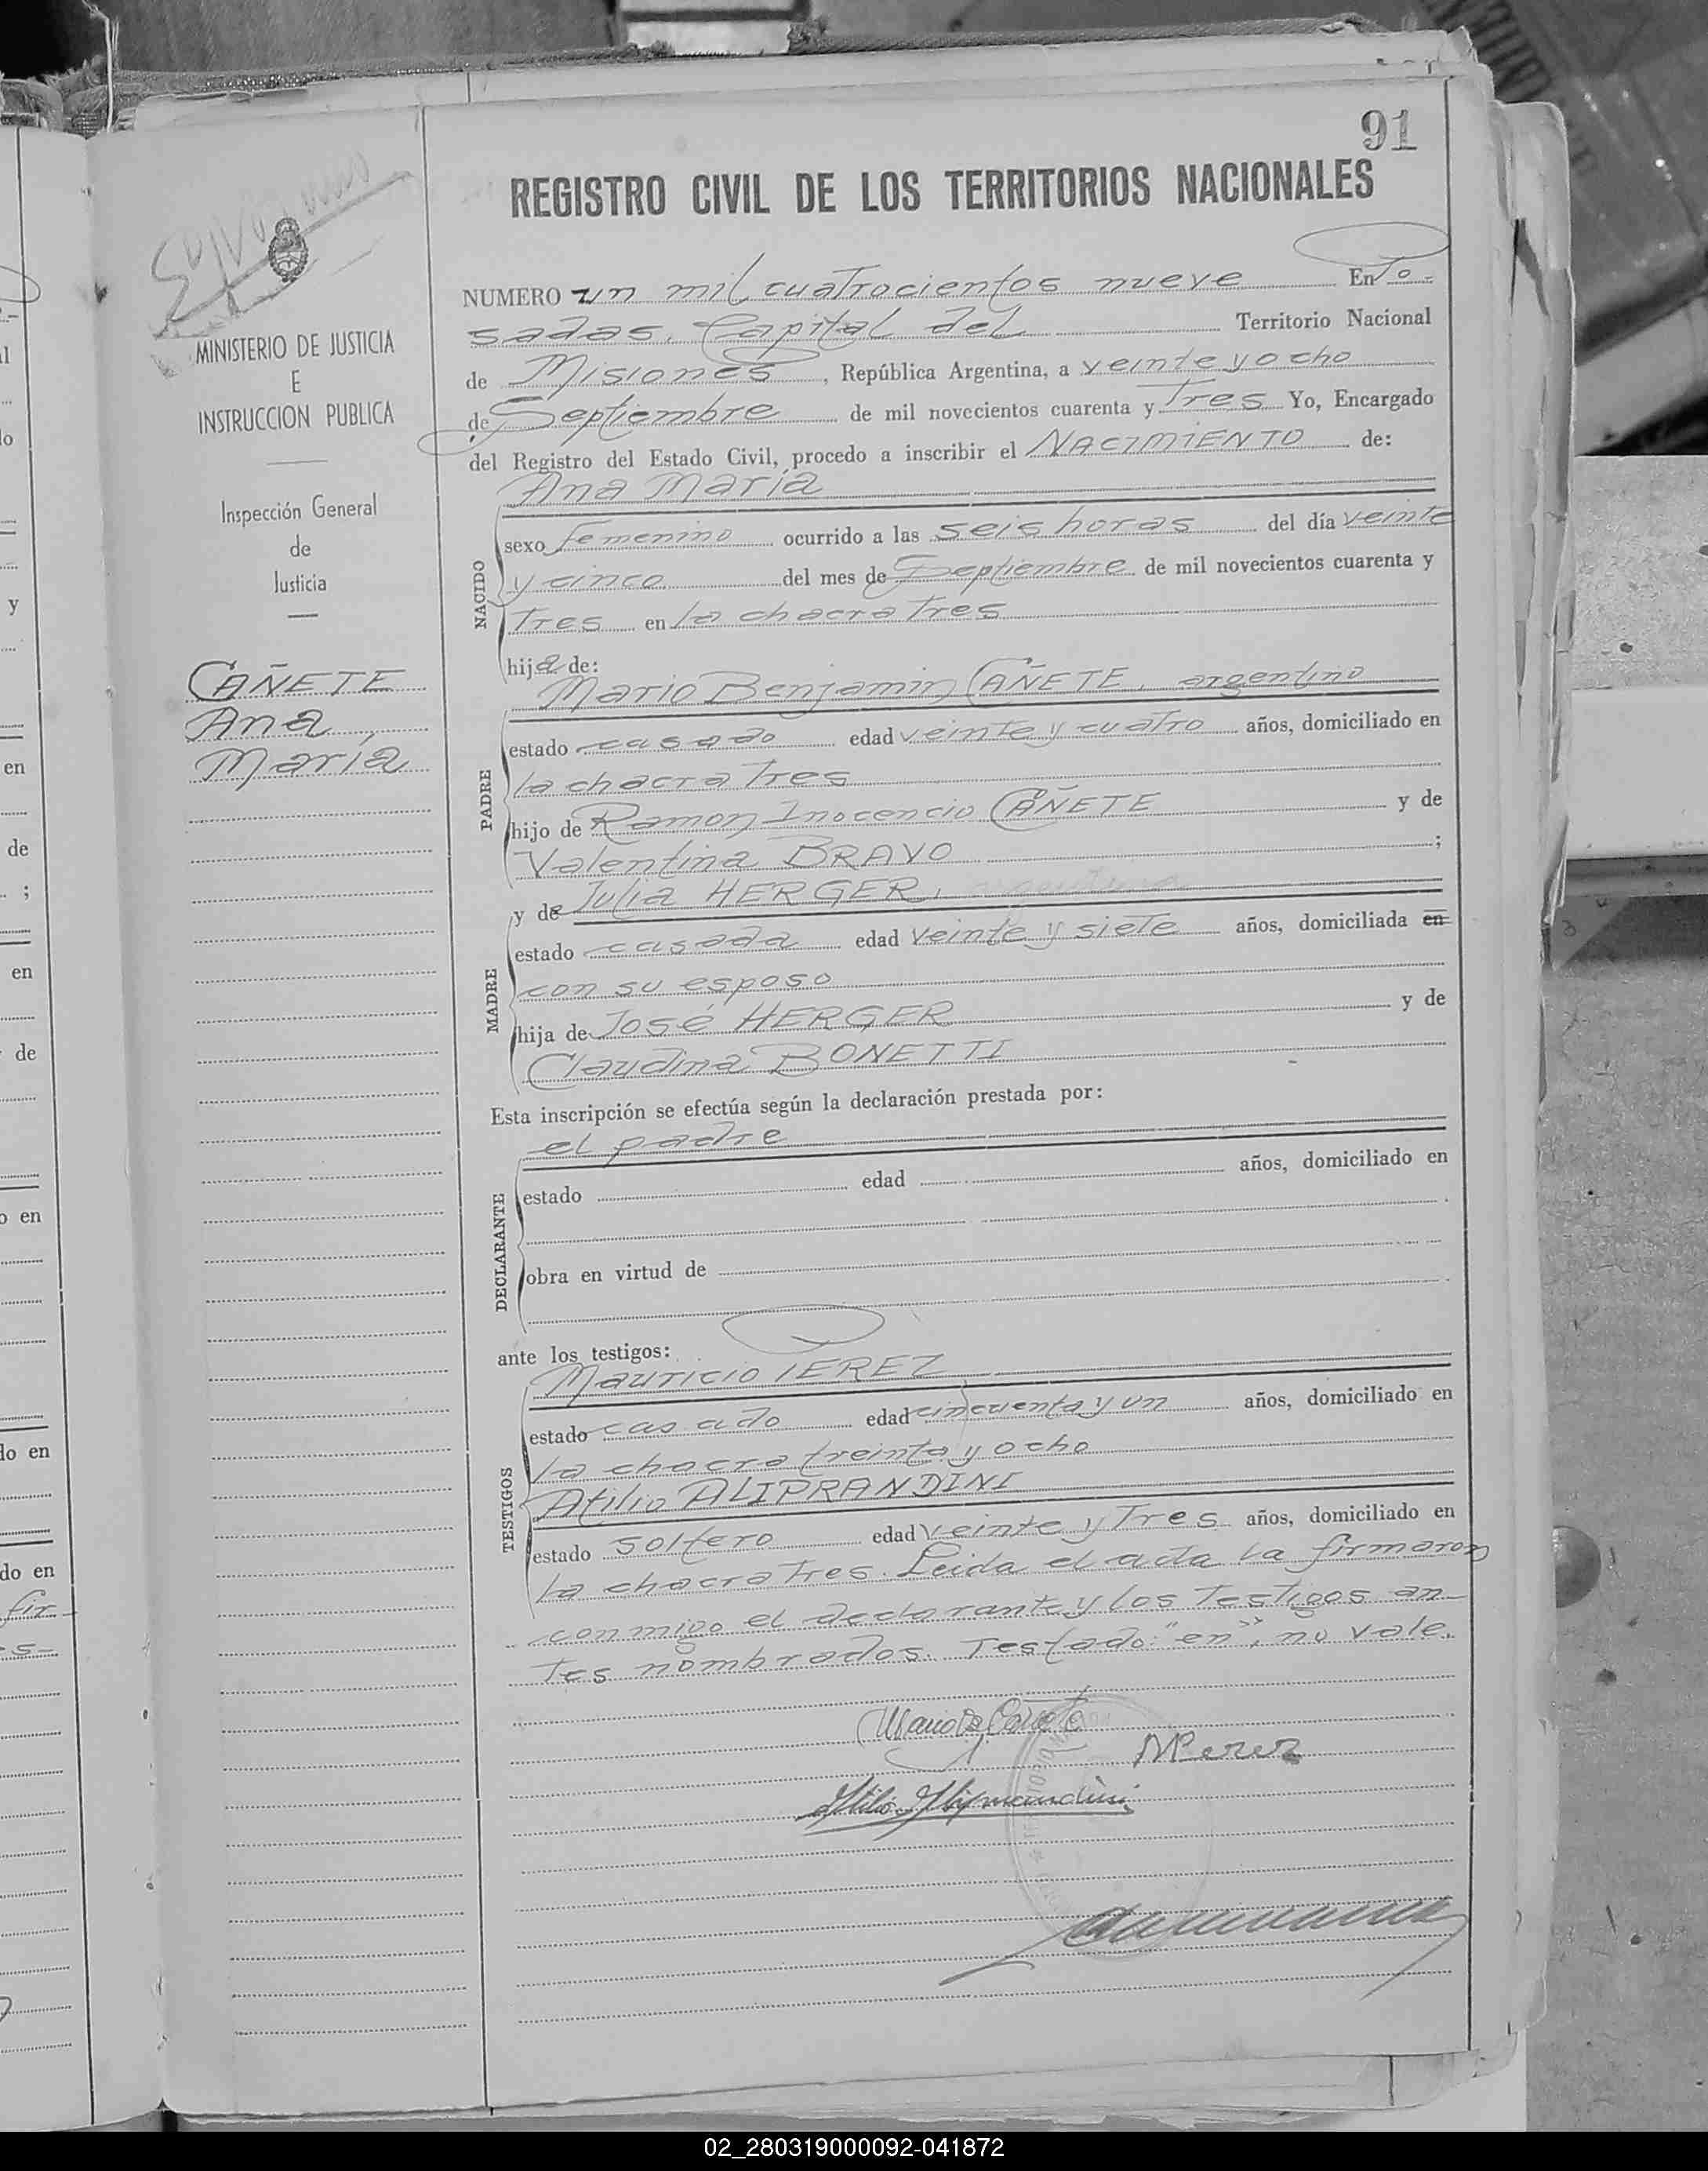 91
REGISTRO CIVIL DE LOS TERRITORIOS NACIONALES
MINISTERIO DE JUSTICIA
E
INSTRUCCION PUBLICA
Inspección General
de
Justicia
CAÑETE
Ana
María
NUMERO un mil cuatrocientos nueve En Po-
sadas, Capital del Territorio Nacional
de Misiones, República Argentina, a veinte y ocho
de Septiembre de mil novecientos cuarenta y Tres Yo, Encargado
del Registro del Estado Civil, procedo a inscribir el NACIMIENTO de:
Ana María
NACIDO
sexo femenino ocurrido a las seis horas del día veinte
y cinco del mes de Septiembre de mil novecientos cuarenta y
Tres en la chacra Tres
hija de:
Mario Benjamin CAÑETE, argentino
PADRE
estado casado edad veinte y cuatro años, domiciliado en
la chacra Tres
hijo de Ramon Inocencio CAÑETE y de
Valentina BRAVO ;
y de Julia HERGER, argentina
MADRE
estado casada edad veinte y siete años, domiciliada en
con su esposo
hija de José HERGER y de
Claudina BONETTI
Esta inscripción se efectúa según la declaración prestada por:
el padre
DECLARANTE
estado edad años, domiciliado en
obra en virtud de
ante los testigos:
Mauricio PEREZ
TESTIGOS
estado casado edad cincuenta y un años, domiciliado en
la chacra treinta y ocho
Atilio ALIPRANDINI
estado soltero edad veinte y Tres años, domiciliado en
la chacra Tres. Leida el acta la firmaron
conmigo el declarante y los Testigos an-
Tes nombrados. Testado: "en", no vale.
Mario B. Cañete
MPerez
Atilio Aliprandini
02_280319000092-041872